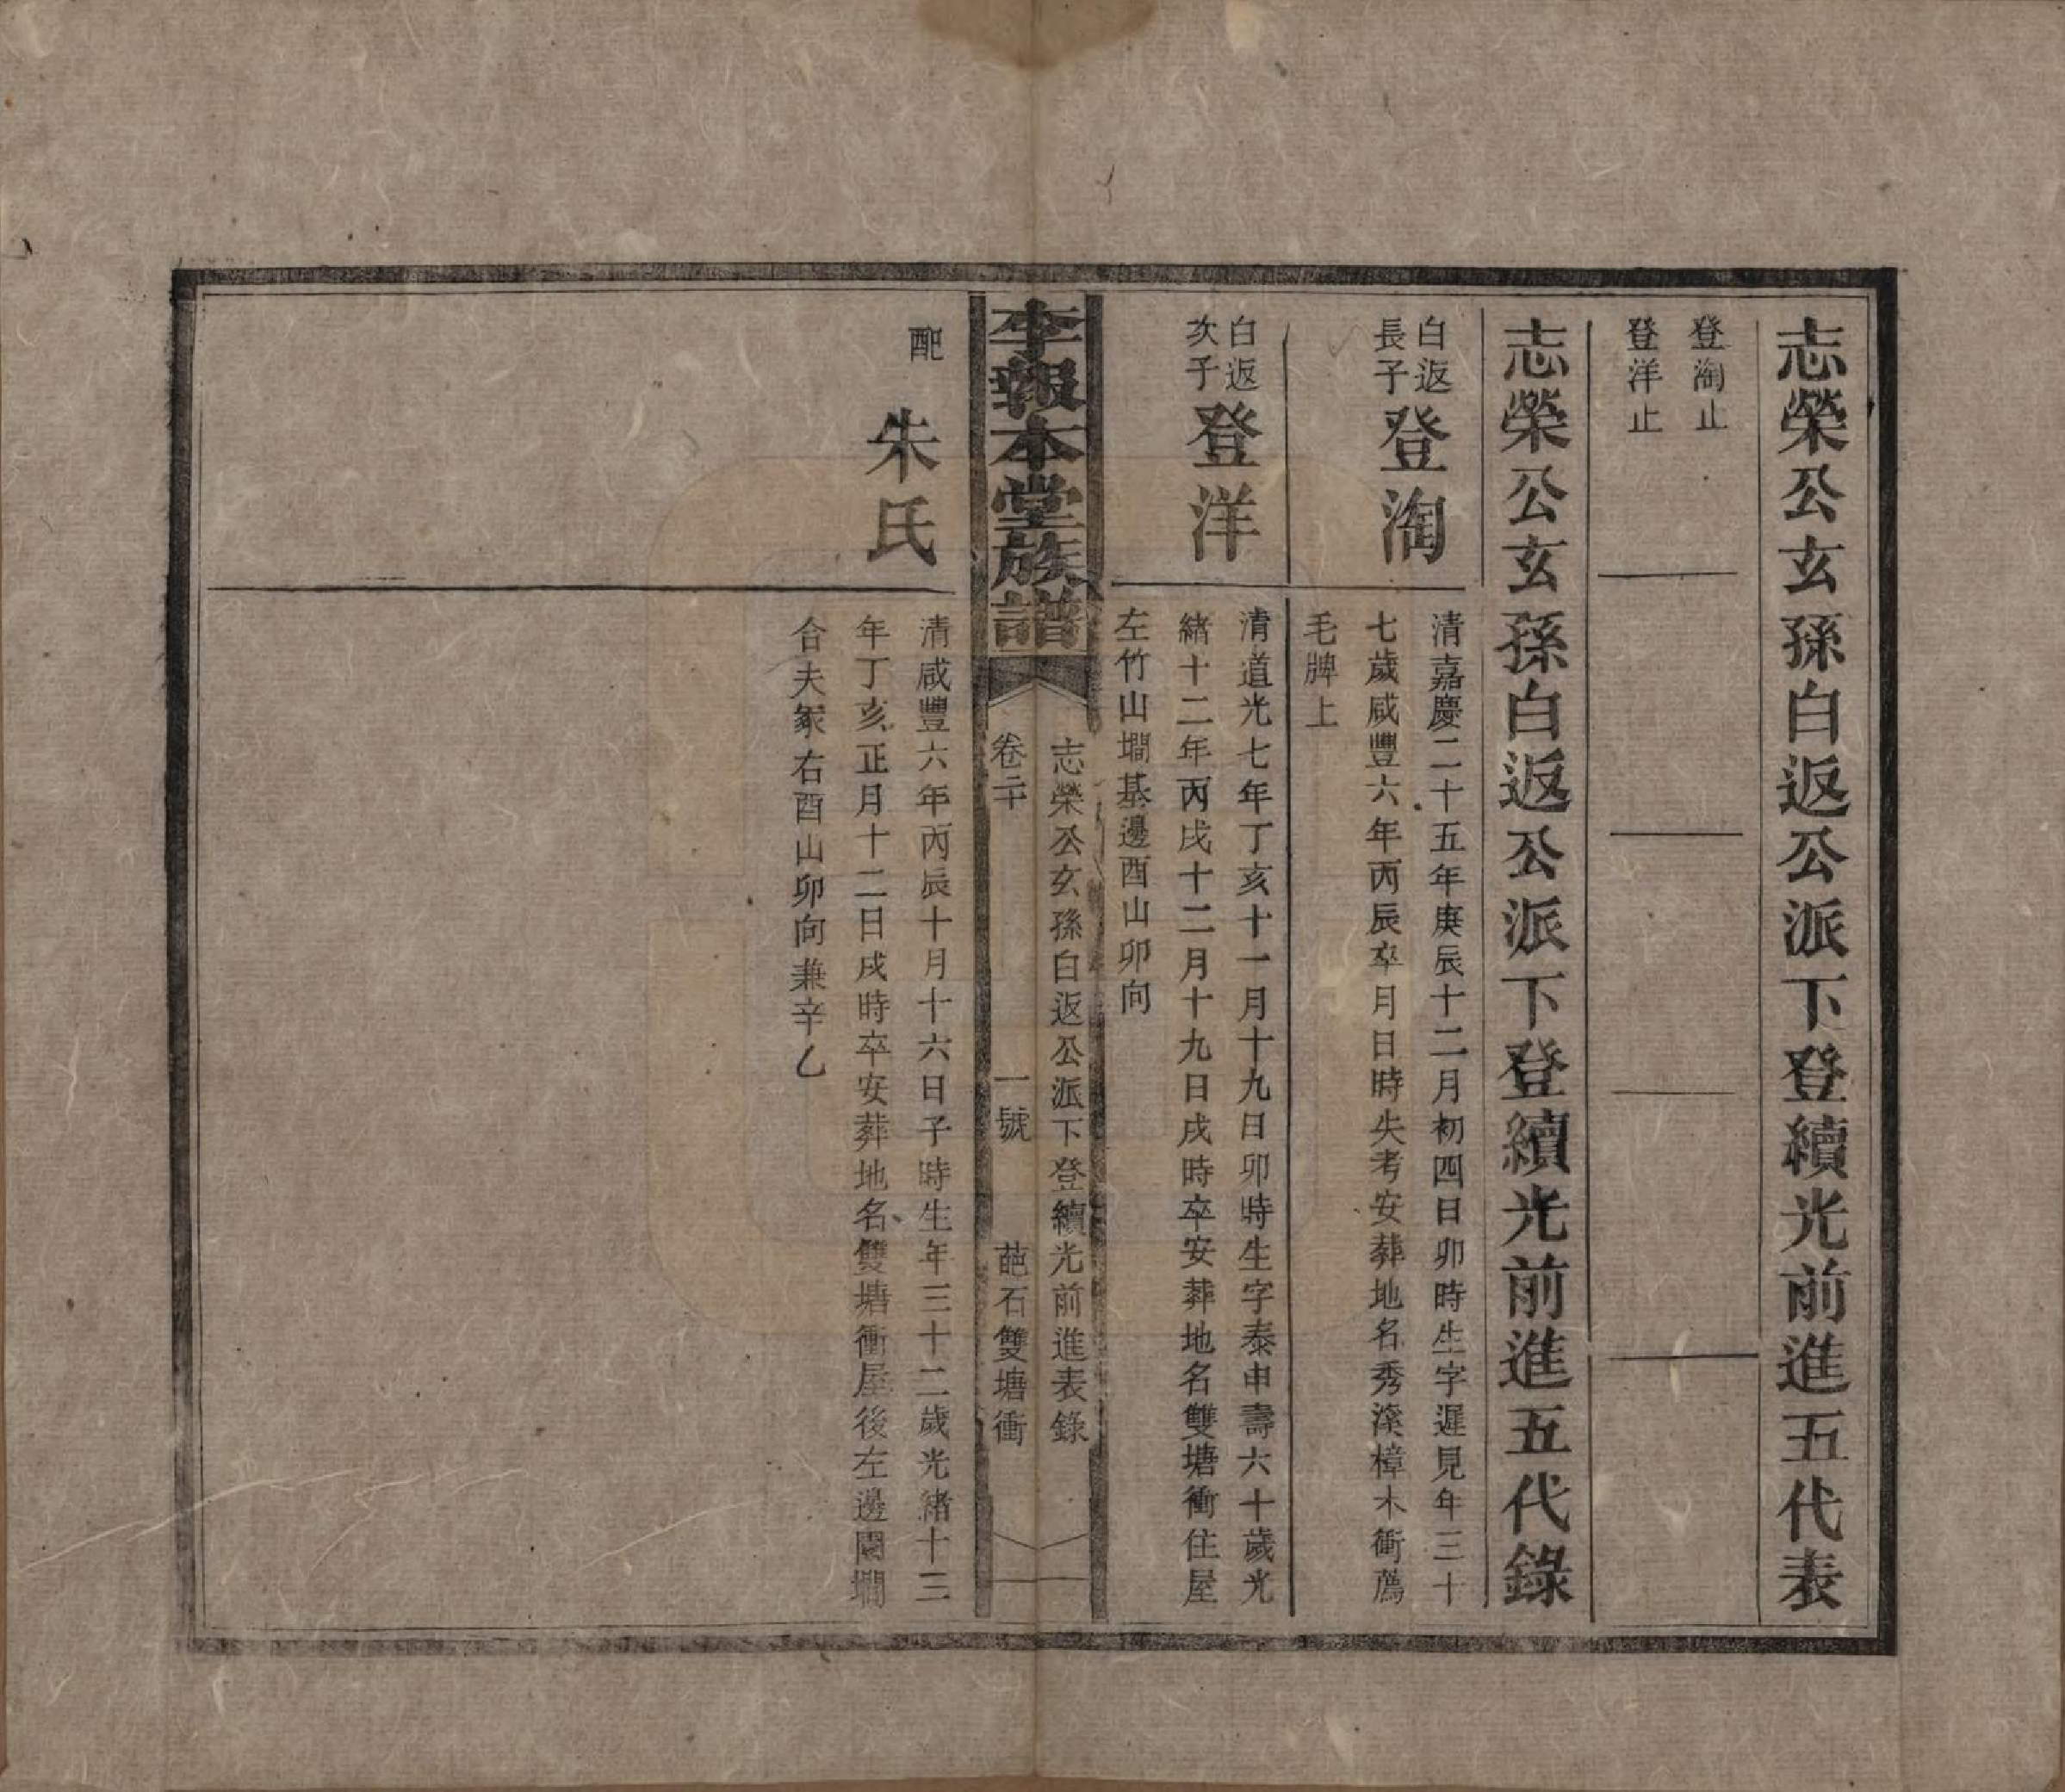 志榮公玄孫白返公派下登續光前進五代表
登淘止
登洋止
志榮公玄孫白返公派下登續光前進五代錄
白返
長子
登淘
清嘉慶二十五年庚辰十二月初四日卯時生字遲見年三十
七歲咸豐六年丙辰卒月日時失考安葬地名秀溪樟木衝鷹
毛牌上
白返
次子
登洋
清道光七年丁亥十一月十九日卯時生字泰申壽六十歲光
緒十二年丙戌十二月十九日戌時卒安葬地名雙塘衝住屋
左竹山墹基邊酉山卯向
李報本堂族譜
志榮公玄孫白返公派下登續光前進表錄
卷二十
一號
葩石雙塘衝
配
朱氏
清咸豐六年丙辰十月十六日子時生年三十二歲光緒十三
年丁亥正月十二日戌時卒安葬地名雙塘衝屋後左邊園墹
合夫冢右酉山卯向兼辛乙